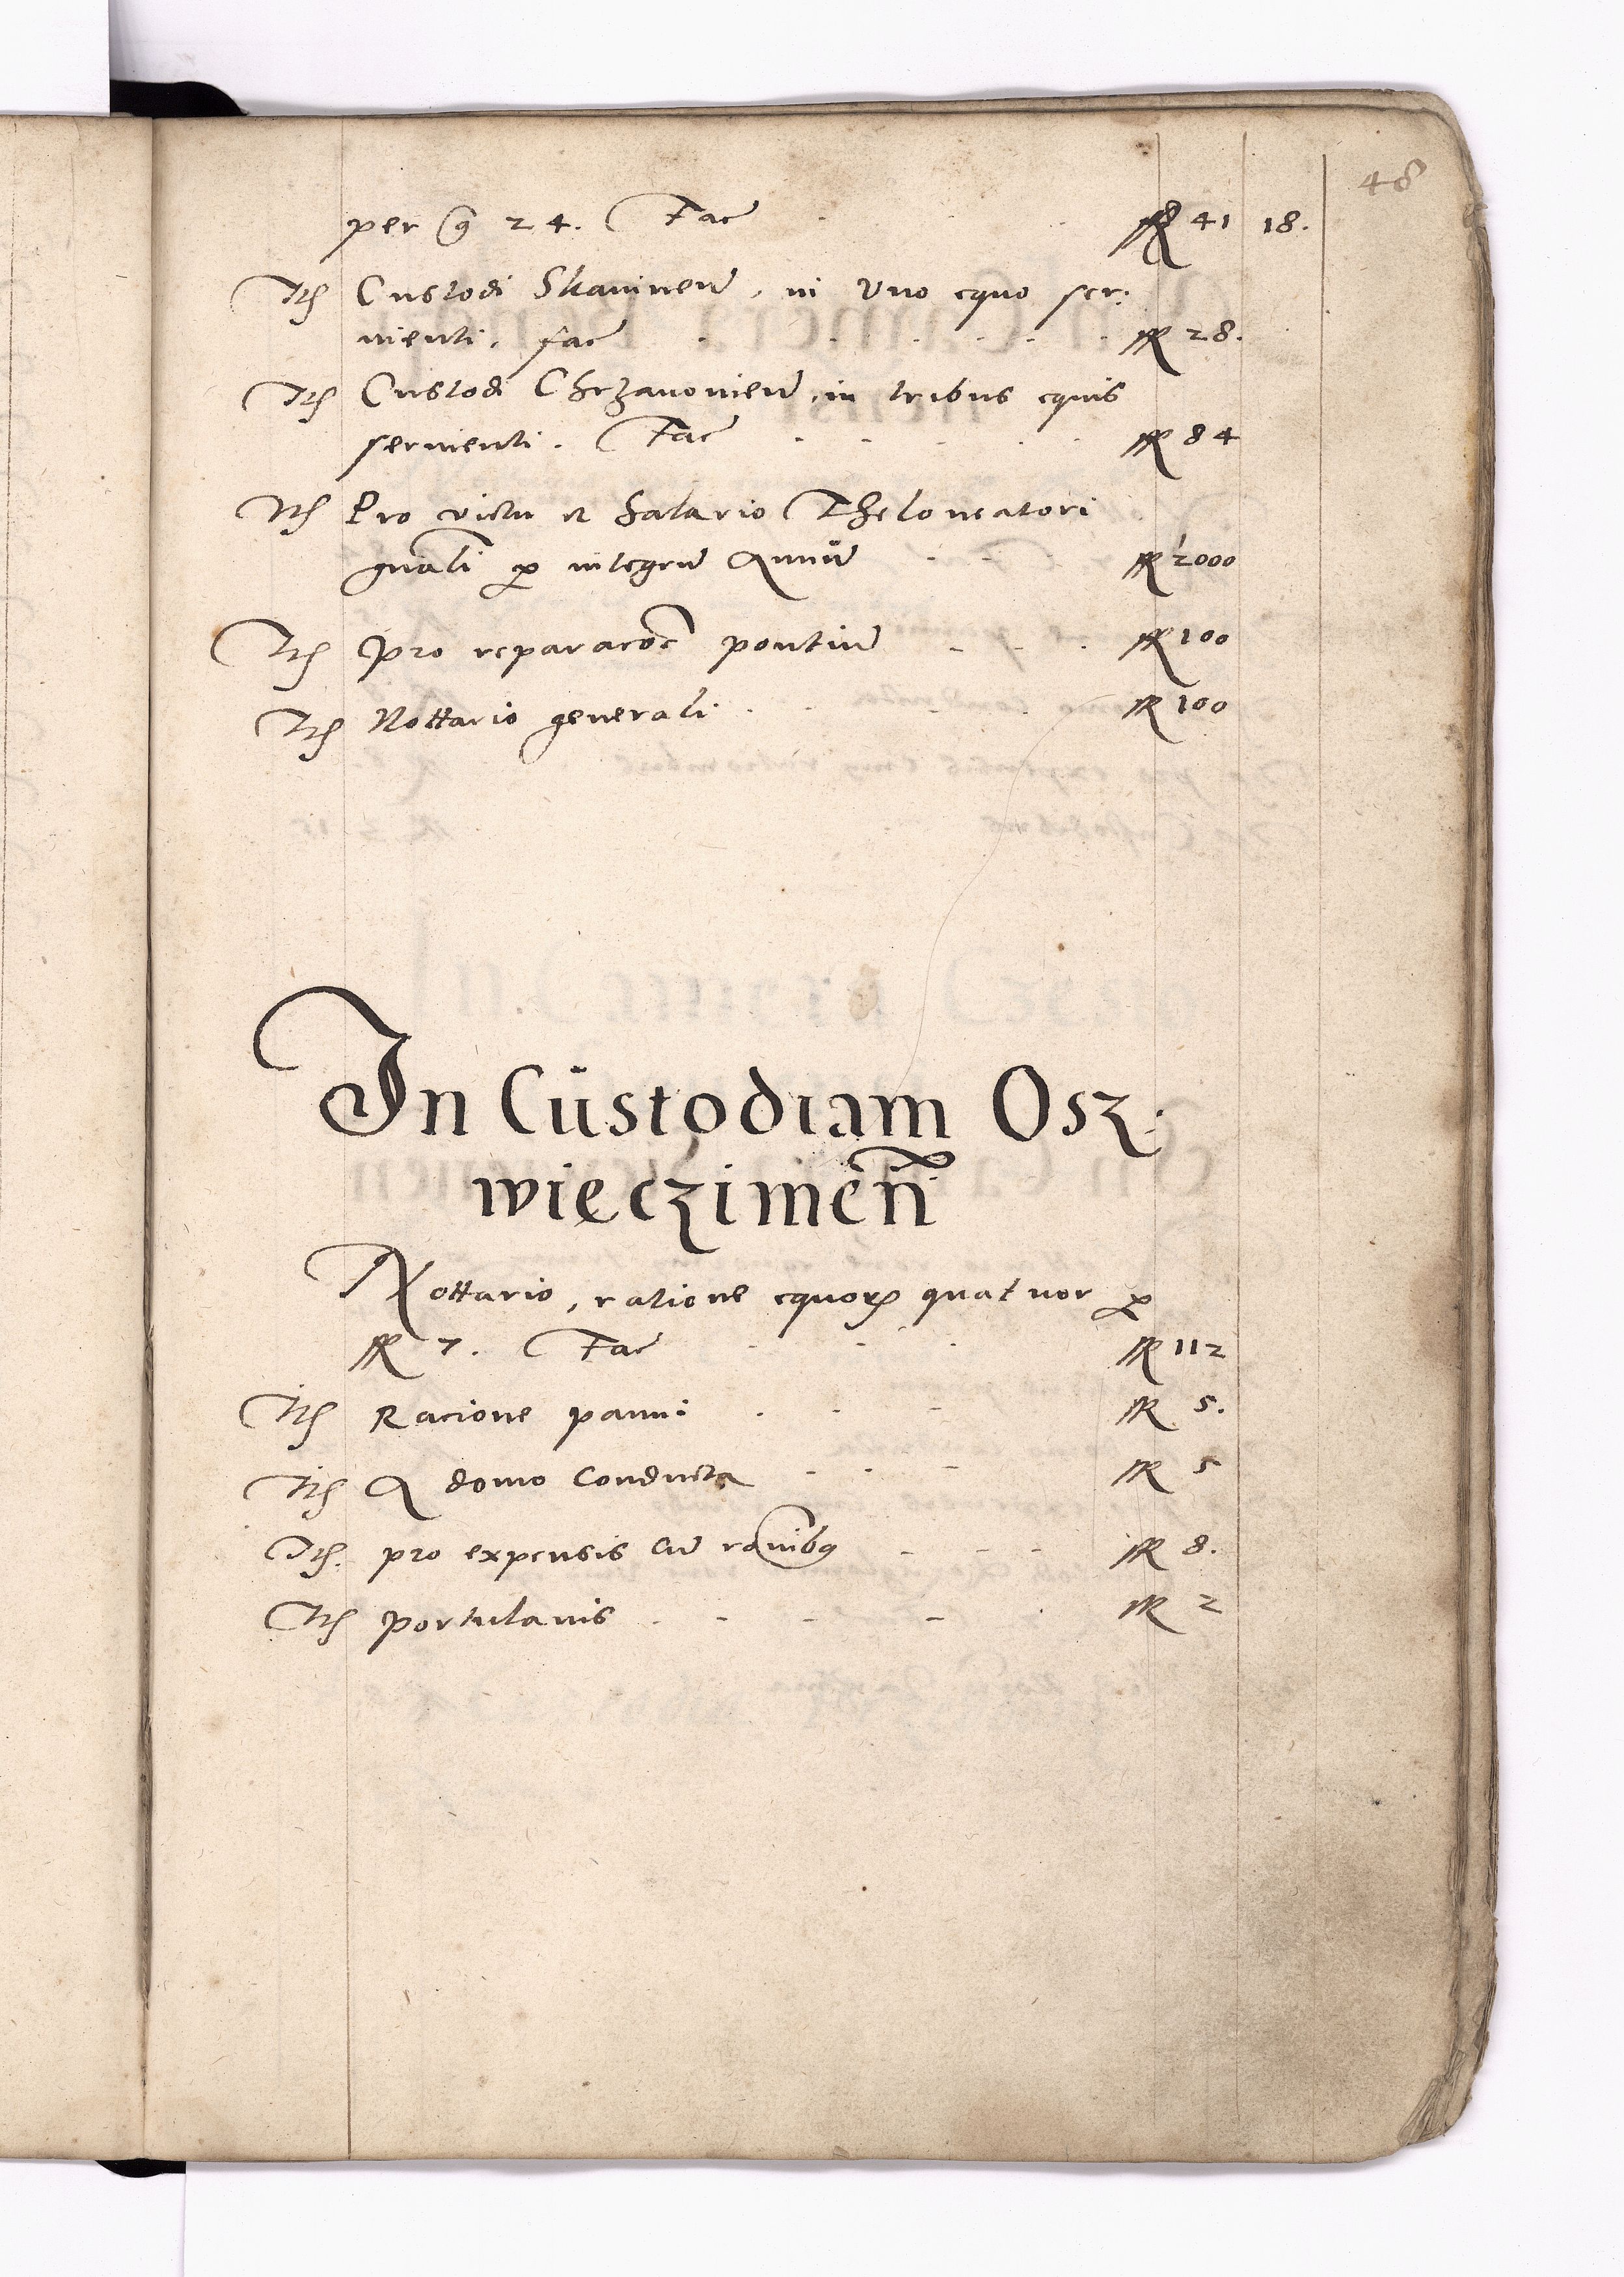 48
per gr 24. Fac̄ fl 41 18.
Itē Custodi Skawineñ, in Vno equo ser:
uienti, fac̄ fl 28.
Itē Custodi Chrzanouieñ, in tribus equis
seruienti. Fac̄ fl 84
Itē Pro victu et Salario Theloneatori
gnāli ꝑ integrū Annū fl 2000
Itē Pro reparacōe pontiū fl 100
Itē Nottario generali fl 100
In Cůstodiam Osz:
więczimeñ
Nottario, ratione equorꝝ quatuor ꝑ
fl 7. Fac̄ fl 112
Itē Racione panni fl 5.
Itē A domo Conducta fl 5
Itē pro expensis cū rōnibꝯ fl 8.
Itē portulanis fl 2